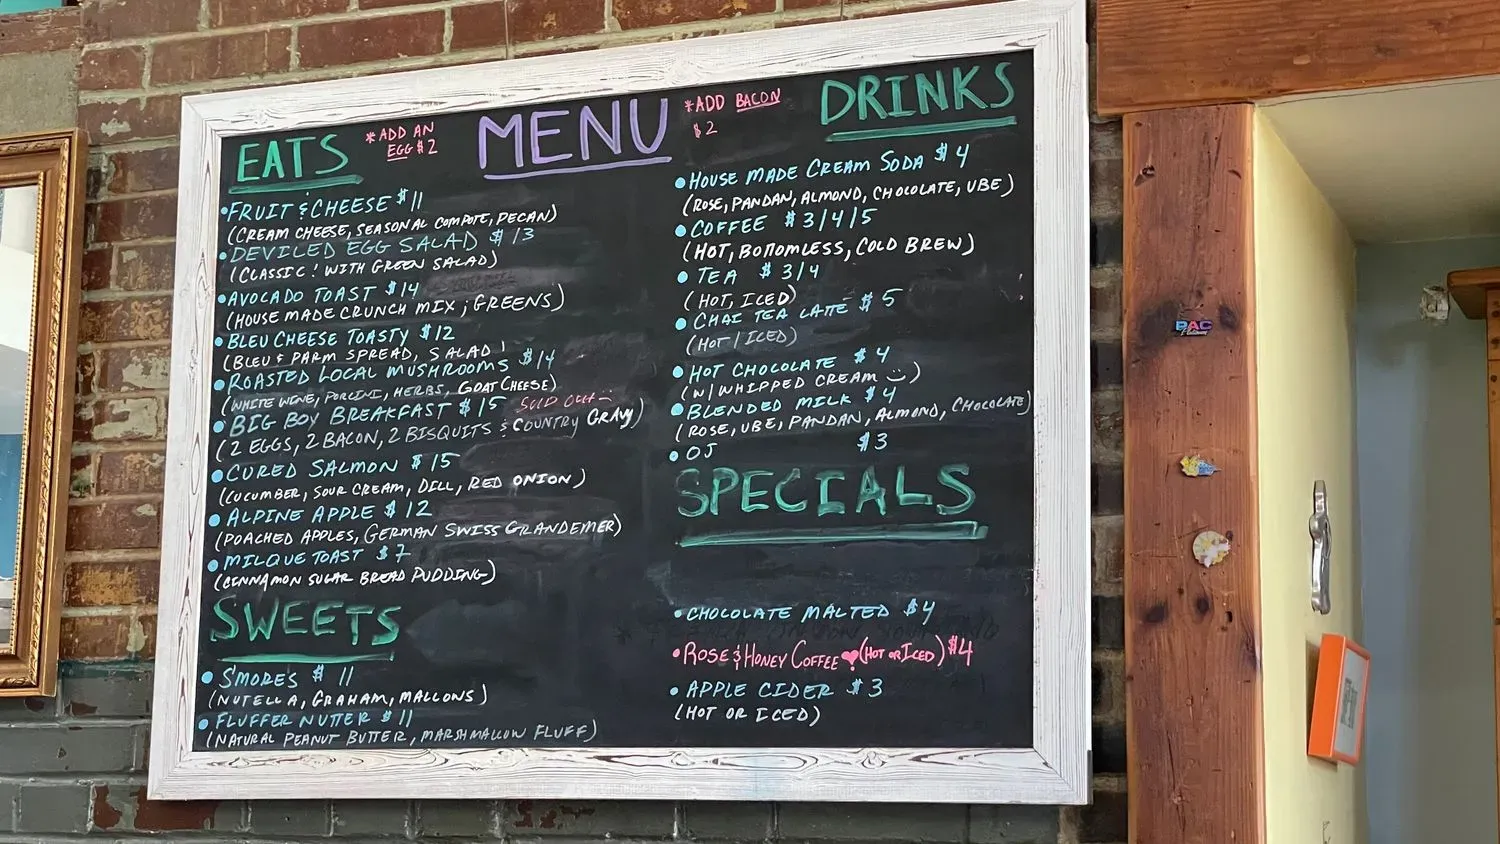 EATS
*ADD AN
EGG $2
MENU
*ADD BACON
$2
DRINKS
•FRUIT & CHEESE $11
(CREAM CHEESE, SEASONAL COMPOTE, PECAN)
•DEVILED EGG SALAD $13
(CLASSIC! WITH GREEN SALAD)
•AVOCADO TOAST $14
(HOUSE MADE CRUNCH MIX; GREENS)
•BLEU CHEESE TOASTY $12
(BLEU & PARM SPREAD, SALAD)
•ROASTED LOCAL MUSHROOMS $14
(WHITE WINE, PORCINI, HERBS, GOAT CHEESE)
•BIG BOY BREAKFAST $15 SOLD OUT
(2 EGGS, 2 BACON, 2 BISQUITS & COUNTRY GRAVY)
•CURED SALMON $15
(CUCUMBER, SOUR CREAM, DILL, RED ONION)
•ALPINE APPLE $12
(POACHED APPLES, GERMAN SWISS GRANDEMER)
•MILQUE TOAST $7
(CINNAMON SUGAR BREAD PUDDING)
SWEETS
•S'MORES $11
(NUTELLA, GRAHAM, MALLONS)
•FLUFFER NUTTER $11
(NATURAL PEANUT BUTTER, MARSHMALLOW FLUFF)
•HOUSE MADE CREAM SODA $4
(ROSE, PANDAN, ALMOND, CHOCOLATE, UBE)
•COFFEE $3/4/5
(HOT, BOTTOMLESS, COLD BREW)
•TEA $3/4
(HOT, ICED)
•CHAI TEA LATTE $5
(HOT/ICED)
•HOT CHOCOLATE $4
(W/WHIPPED CREAM)
•BLENDED MILK $4
(ROSE, UBE, PANDAN, ALMOND, CHOCOLATE)
•OJ $3
SPECIALS
•CHOCOLATE MALTED $4
•ROSE & HONEY COFFEE (HOT OR ICED) $4
•APPLE CIDER $3
(HOT OR ICED)
PAC